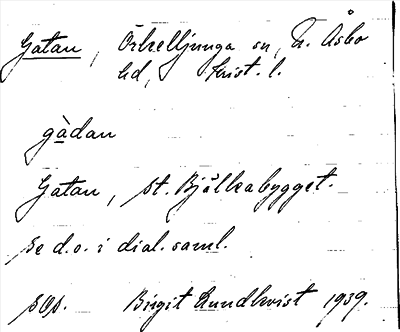 Gatan, Örkelljunga sn, N. Åsbo
hd, Krist. l.
gàdan
Gatan, st. Bjälkabygget.
se d.o. i dial. saml.
sop. Birgit Lundkvist 1939.